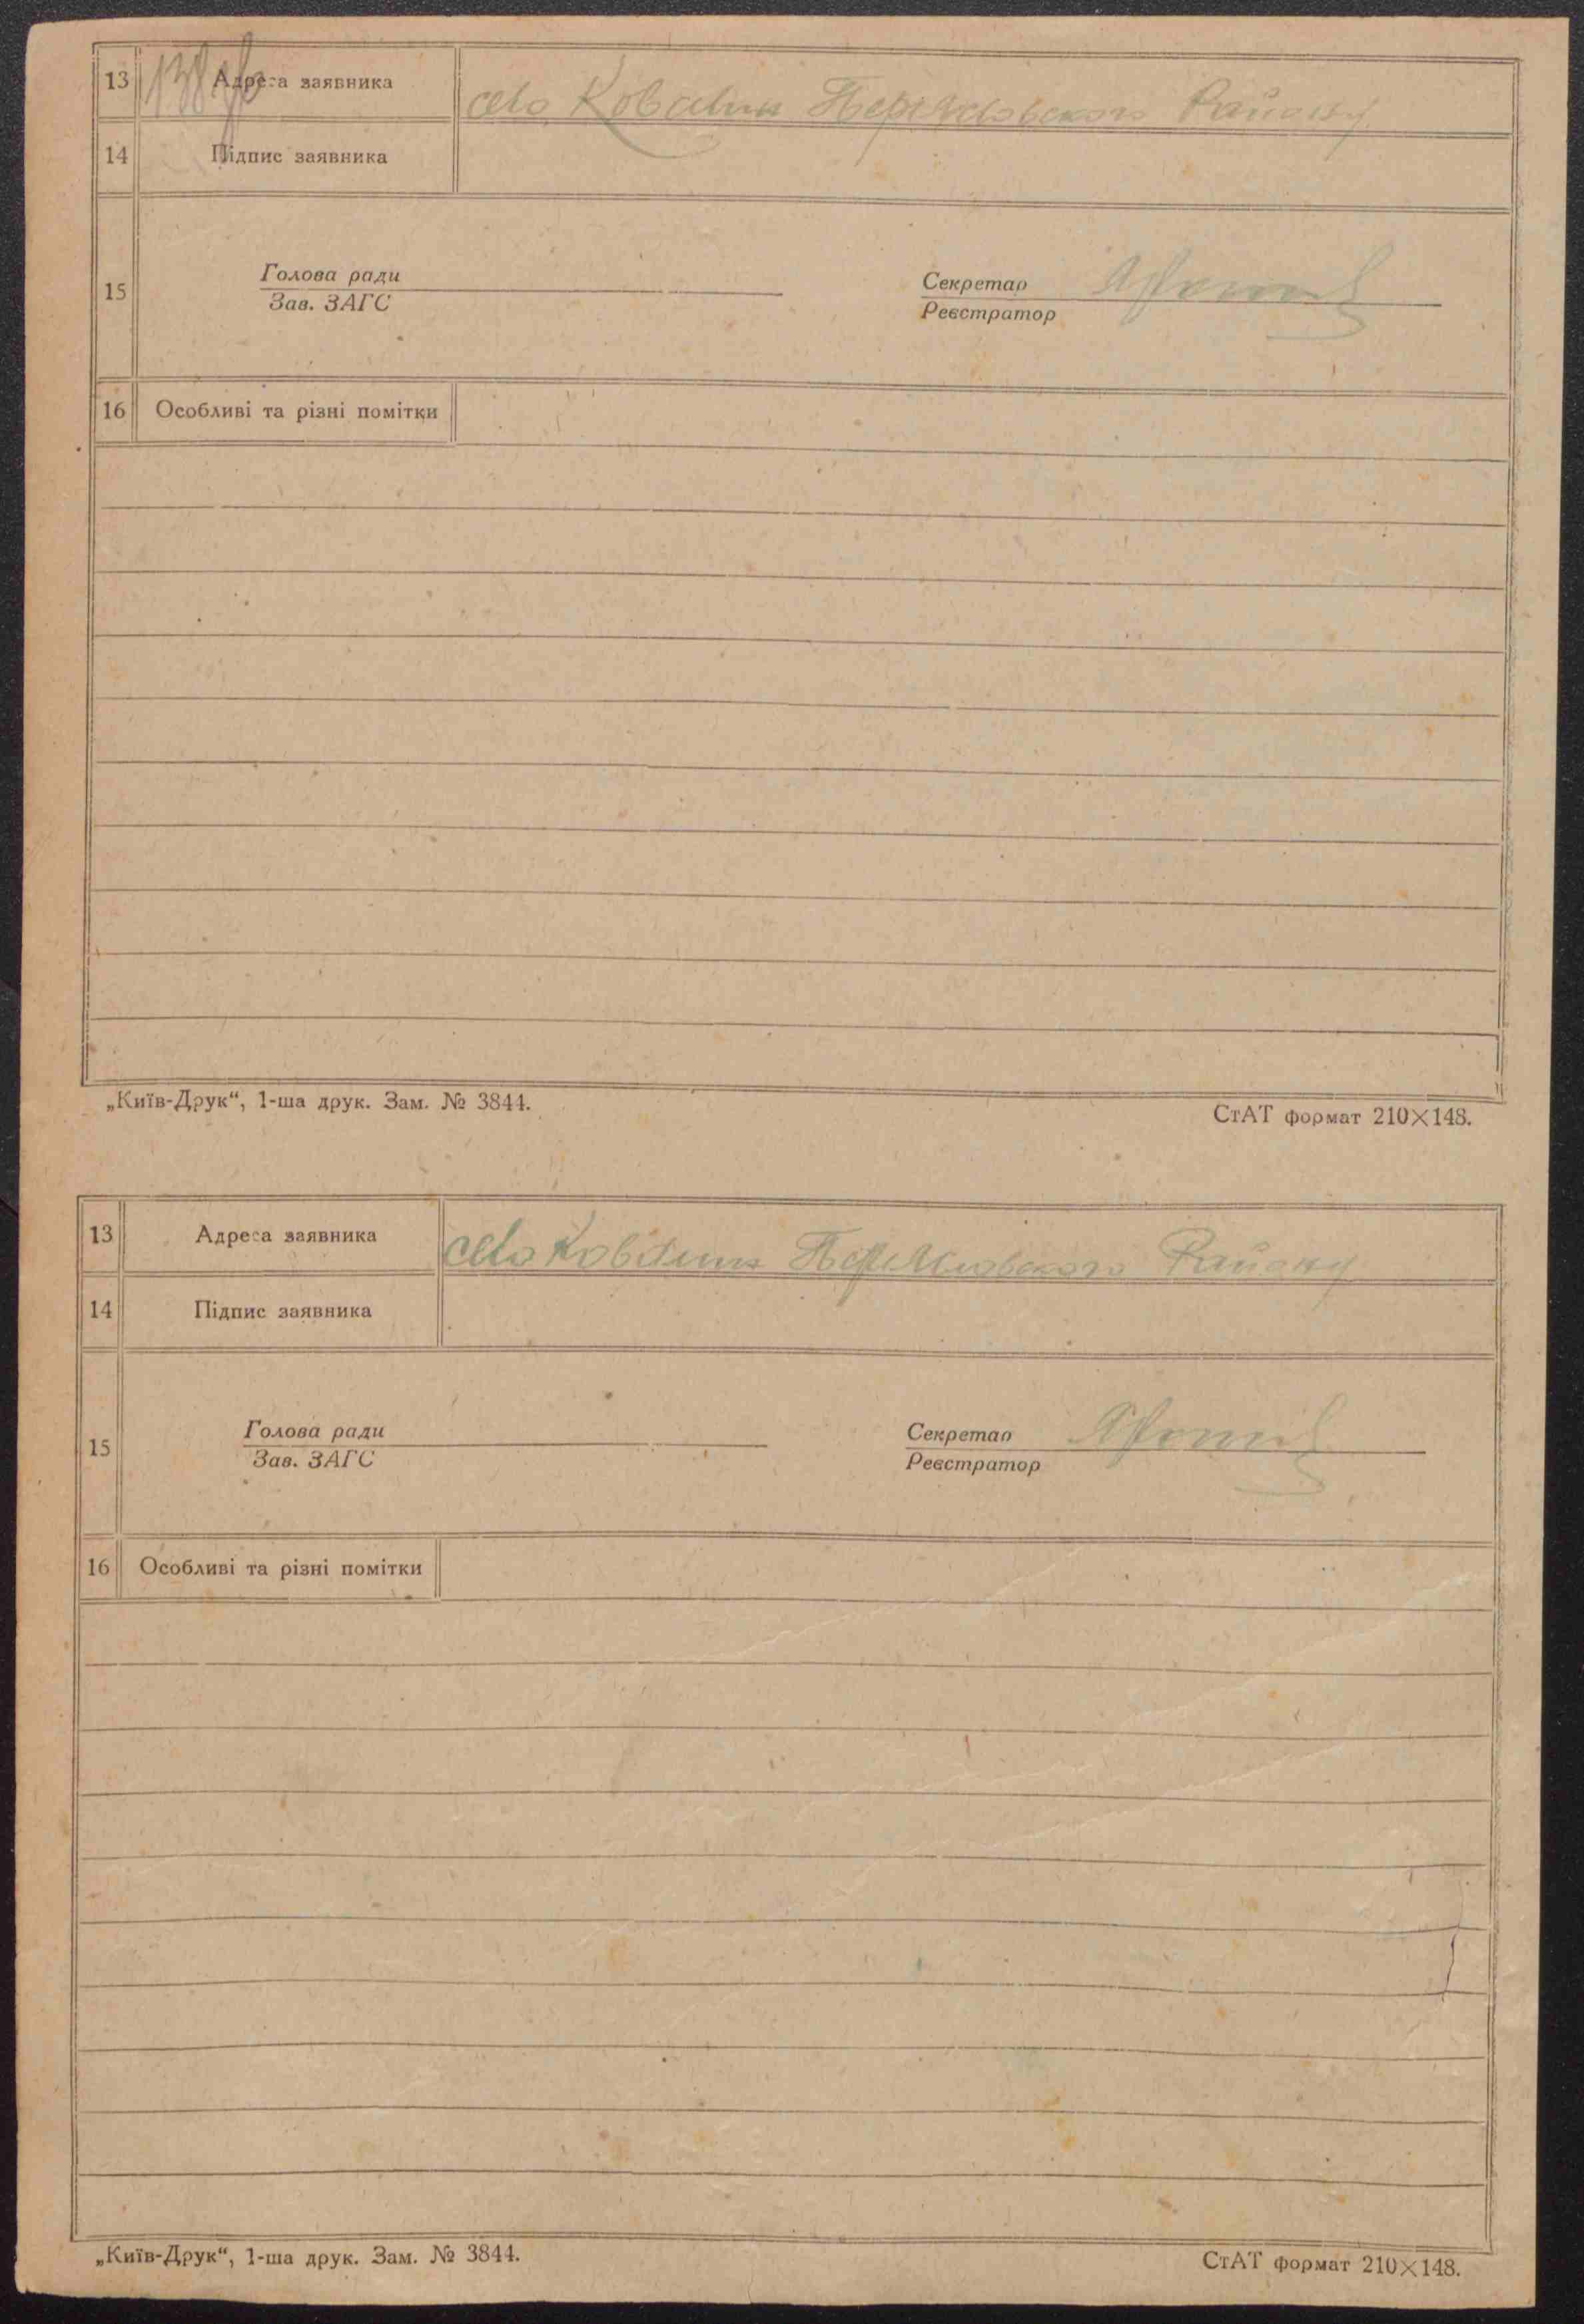 13 Адреса заявника село Ковалин Переяславского Району
14 Підпис заявника
Голова ради Секретар
15
Зав. ЗАГС Реєстратор
16 Особливі та різні помітки
„Київ-Друк“, 1-ша друк. Зам. № 3844. СтАТ формат 210×148.
13 Адреса заявника село Ковалин Переяславского Району
14 Підпис заявника
Голова ради Секретар
15
Зав. ЗАГС Реєстратор
16 Особливі та різні помітки
„Київ-Друк“, 1-ша друк. Зам. № 3844. СтАТ формат 210×148.